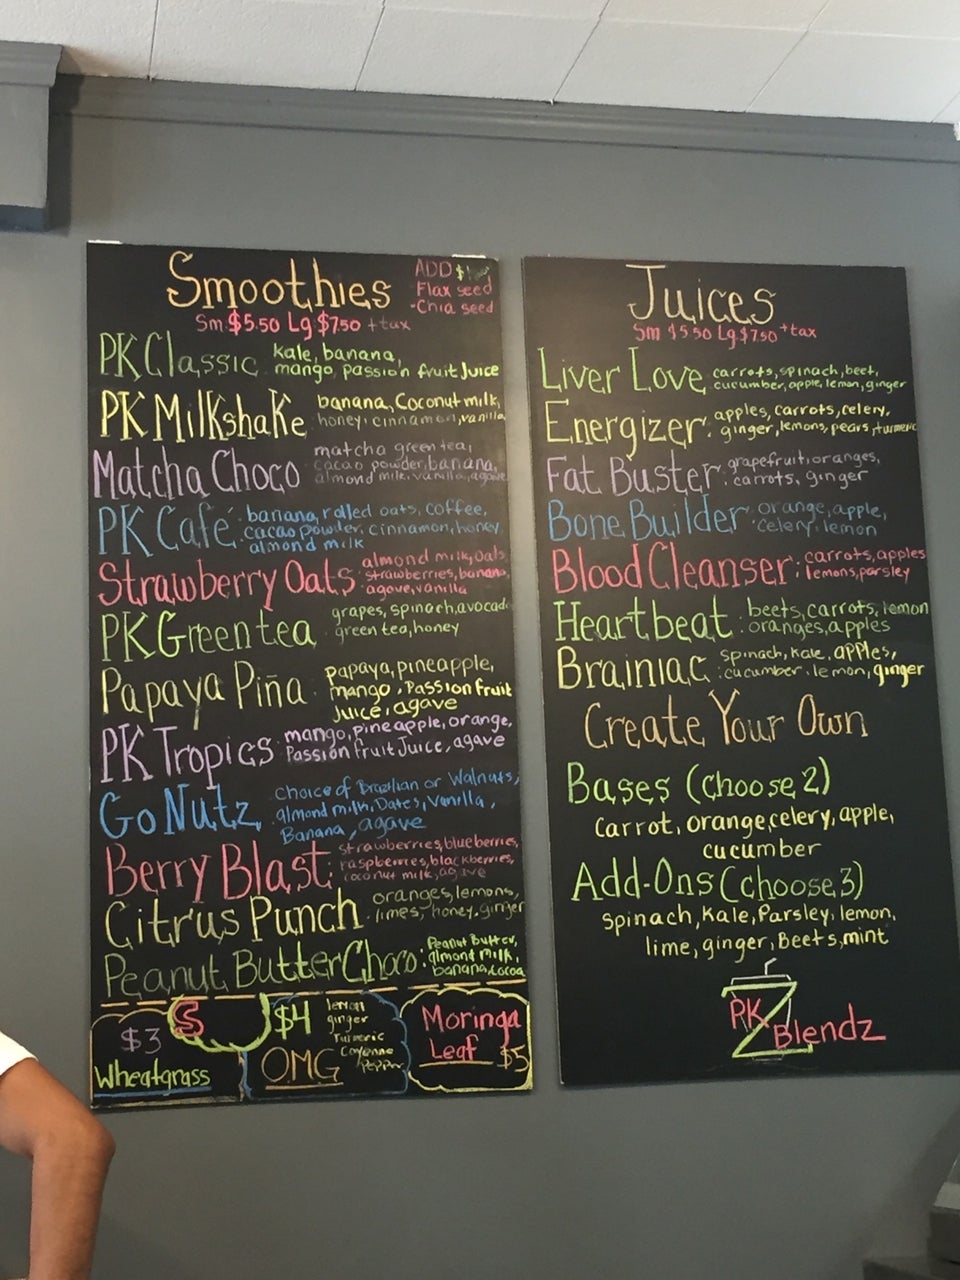 Smoothies
ADD $1
Flax seed
-Chia seed
Sm $5.50 Lg $7.50 + tax
PK Classic kale, banana,
mango, passion fruit Juice
PK Milkshake banana, Coconut milk,
honey, cinnamon, vanilla
Matcha Choco matcha green tea,
cacao powder, banana,
almond milk, vanilla, agave
PK Café banana, rolled oats, coffee,
cacao powder, cinnamon, honey
almond milk
Strawberry Oats almond milk, oats
strawberries, banana,
agave, vanilla
PK Green tea grapes, spinach, avocado
green tea, honey
Papaya Piña papaya, pineapple,
mango, Passion fruit
Juice, agave
PK Tropics mango, pineapple, orange,
Passion fruit Juice, agave
Go Nutz choice of Brazilian or Walnuts,
almond milk, Dates, Vanilla,
Banana, agave
Berry Blast: strawberries, blueberries,
raspberries, blackberries,
coconut milk, agave
Citrus Punch oranges, lemons,
limes, honey, ginger
Peanut Butter Choco: Peanut Butter,
almond milk,
banana, cocoa
$3
5
Wheatgrass
$4
OMG
lemon
ginger
Turmeric
Cayenne
Pepper
Moringa
Leaf $5
Juices
Sm $5.50 Lg $7.50 + tax
Liver Love carrots, spinach, beet,
cucumber, apple, lemon, ginger
Energizer: apples, carrots, celery,
ginger, lemons, pears, turmeric
Fat Buster: grapefruit, oranges,
carrots, ginger
Bone Builder: orange, apple,
celery, lemon
Blood Cleanser: carrots, apples
lemons, parsley
Heartbeat: beets, carrots, lemon
oranges, apples
Brainiac: spinach, kale, apples,
cucumber, lemon, ginger
Create Your Own
Bases (Choose 2)
Carrot, orange, celery, apple,
cucumber
Add-Ons (choose 3)
spinach, Kale, Parsley, lemon,
lime, ginger, Beets, mint
PK
Blendz